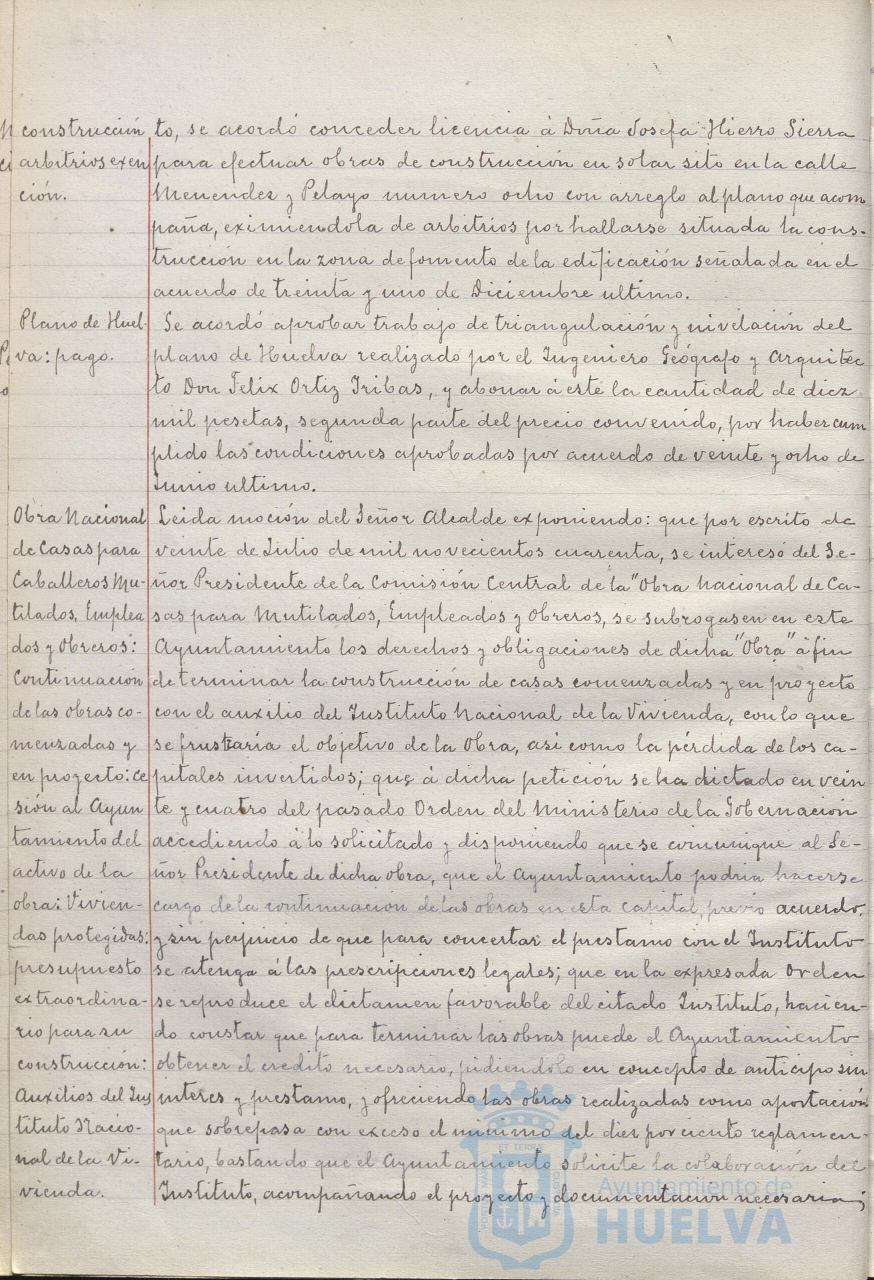 construcción
arbitrios exen
ción.
to, se acordó conceder licencia á Doña Josefa Hierro Sierra
para efectuar obras de construcción en solar sito en la calle
Menendez y Pelayo numero ocho con arreglo al plano que acom
paña, eximiendola de arbitrios por hallarse situada la cons-
trucción en la zona de fomento de la edificación señalada en el
acuerdo de treinta y uno de Diciembre ultimo.
Plano de Huel-
va: pago.
Se acordó aprobar trabajo de triangulación y nivelación del
plano de Huelva realizado por el Ingeniero Geógrafo y Arquitec
to Don Felix Ortiz Iribas, y abonar á este la cantidad de diez
mil pesetas, segunda parte del precio convenido, por haber cum
plido las condiciones aprobadas por acuerdo de veinte y ocho de
Junio ultimo.
Obra Nacional
de Casas para
Caballeros Mu-
tilados, Emplea
dos y Obreros:
Continuación
de las obras co-
menzadas y
en proyecto: ce
sión al Ayun
tamiento del
activo de la
obra: Vivien-
das protegidas:
presupuesto
extraordina-
rio para su
construcción:
Auxilios del Ins
tituto Nacio-
nal de la Vi-
vienda.
Leida moción del Señor Alcalde exponiendo: que por escrito de
veinte de Julio de mil novecientos cuarenta, se interesó del Se-
ñor Presidente de la Comisión Central de la "Obra Nacional de Ca-
sas para Mutilados, Empleados y Obreros, se subrogasen en este
Ayuntamiento los derechos y obligaciones de dicha "Obra" á fin
de terminar la construcción de casas comenzadas y en proyecto
con el auxilio del Instituto Nacional de la Vivienda, con lo que
se frustraría el objetivo de la Obra, asi como la pérdida de los ca-
pitales invertidos; que á dicha petición se ha dictado en vein
te y cuatro del pasado Orden del Ministerio de la Gobernación
accediendo á lo solicitado y disponiendo que se comunique al Se-
ñor Presidente de dicha obra, que el Ayuntamiento podria hacerse
cargo de la continuación de las obras en esta capital, previo acuerdo,
y sin perjuicio de que para concertar el prestamo con el Instituto
se atenga á las prescripciones legales; que en la expresada Orden
se reproduce el dictamen favorable del citado Instituto, hacien-
do constar que para terminar las obras puede el Ayuntamiento
obtener el credito necesario, pidiendolo en concepto de anticipo sin
interes y prestamo, y ofreciendo las obras realizadas como aportación
que sobrepasa con exceso el minimo del diez por ciento reglamen-
tario, bastando que el Ayuntamiento solicite la colaboración del
Instituto, acompañando el proyecto y documentacion necesaria;
Ayuntamiento de
HUELVA